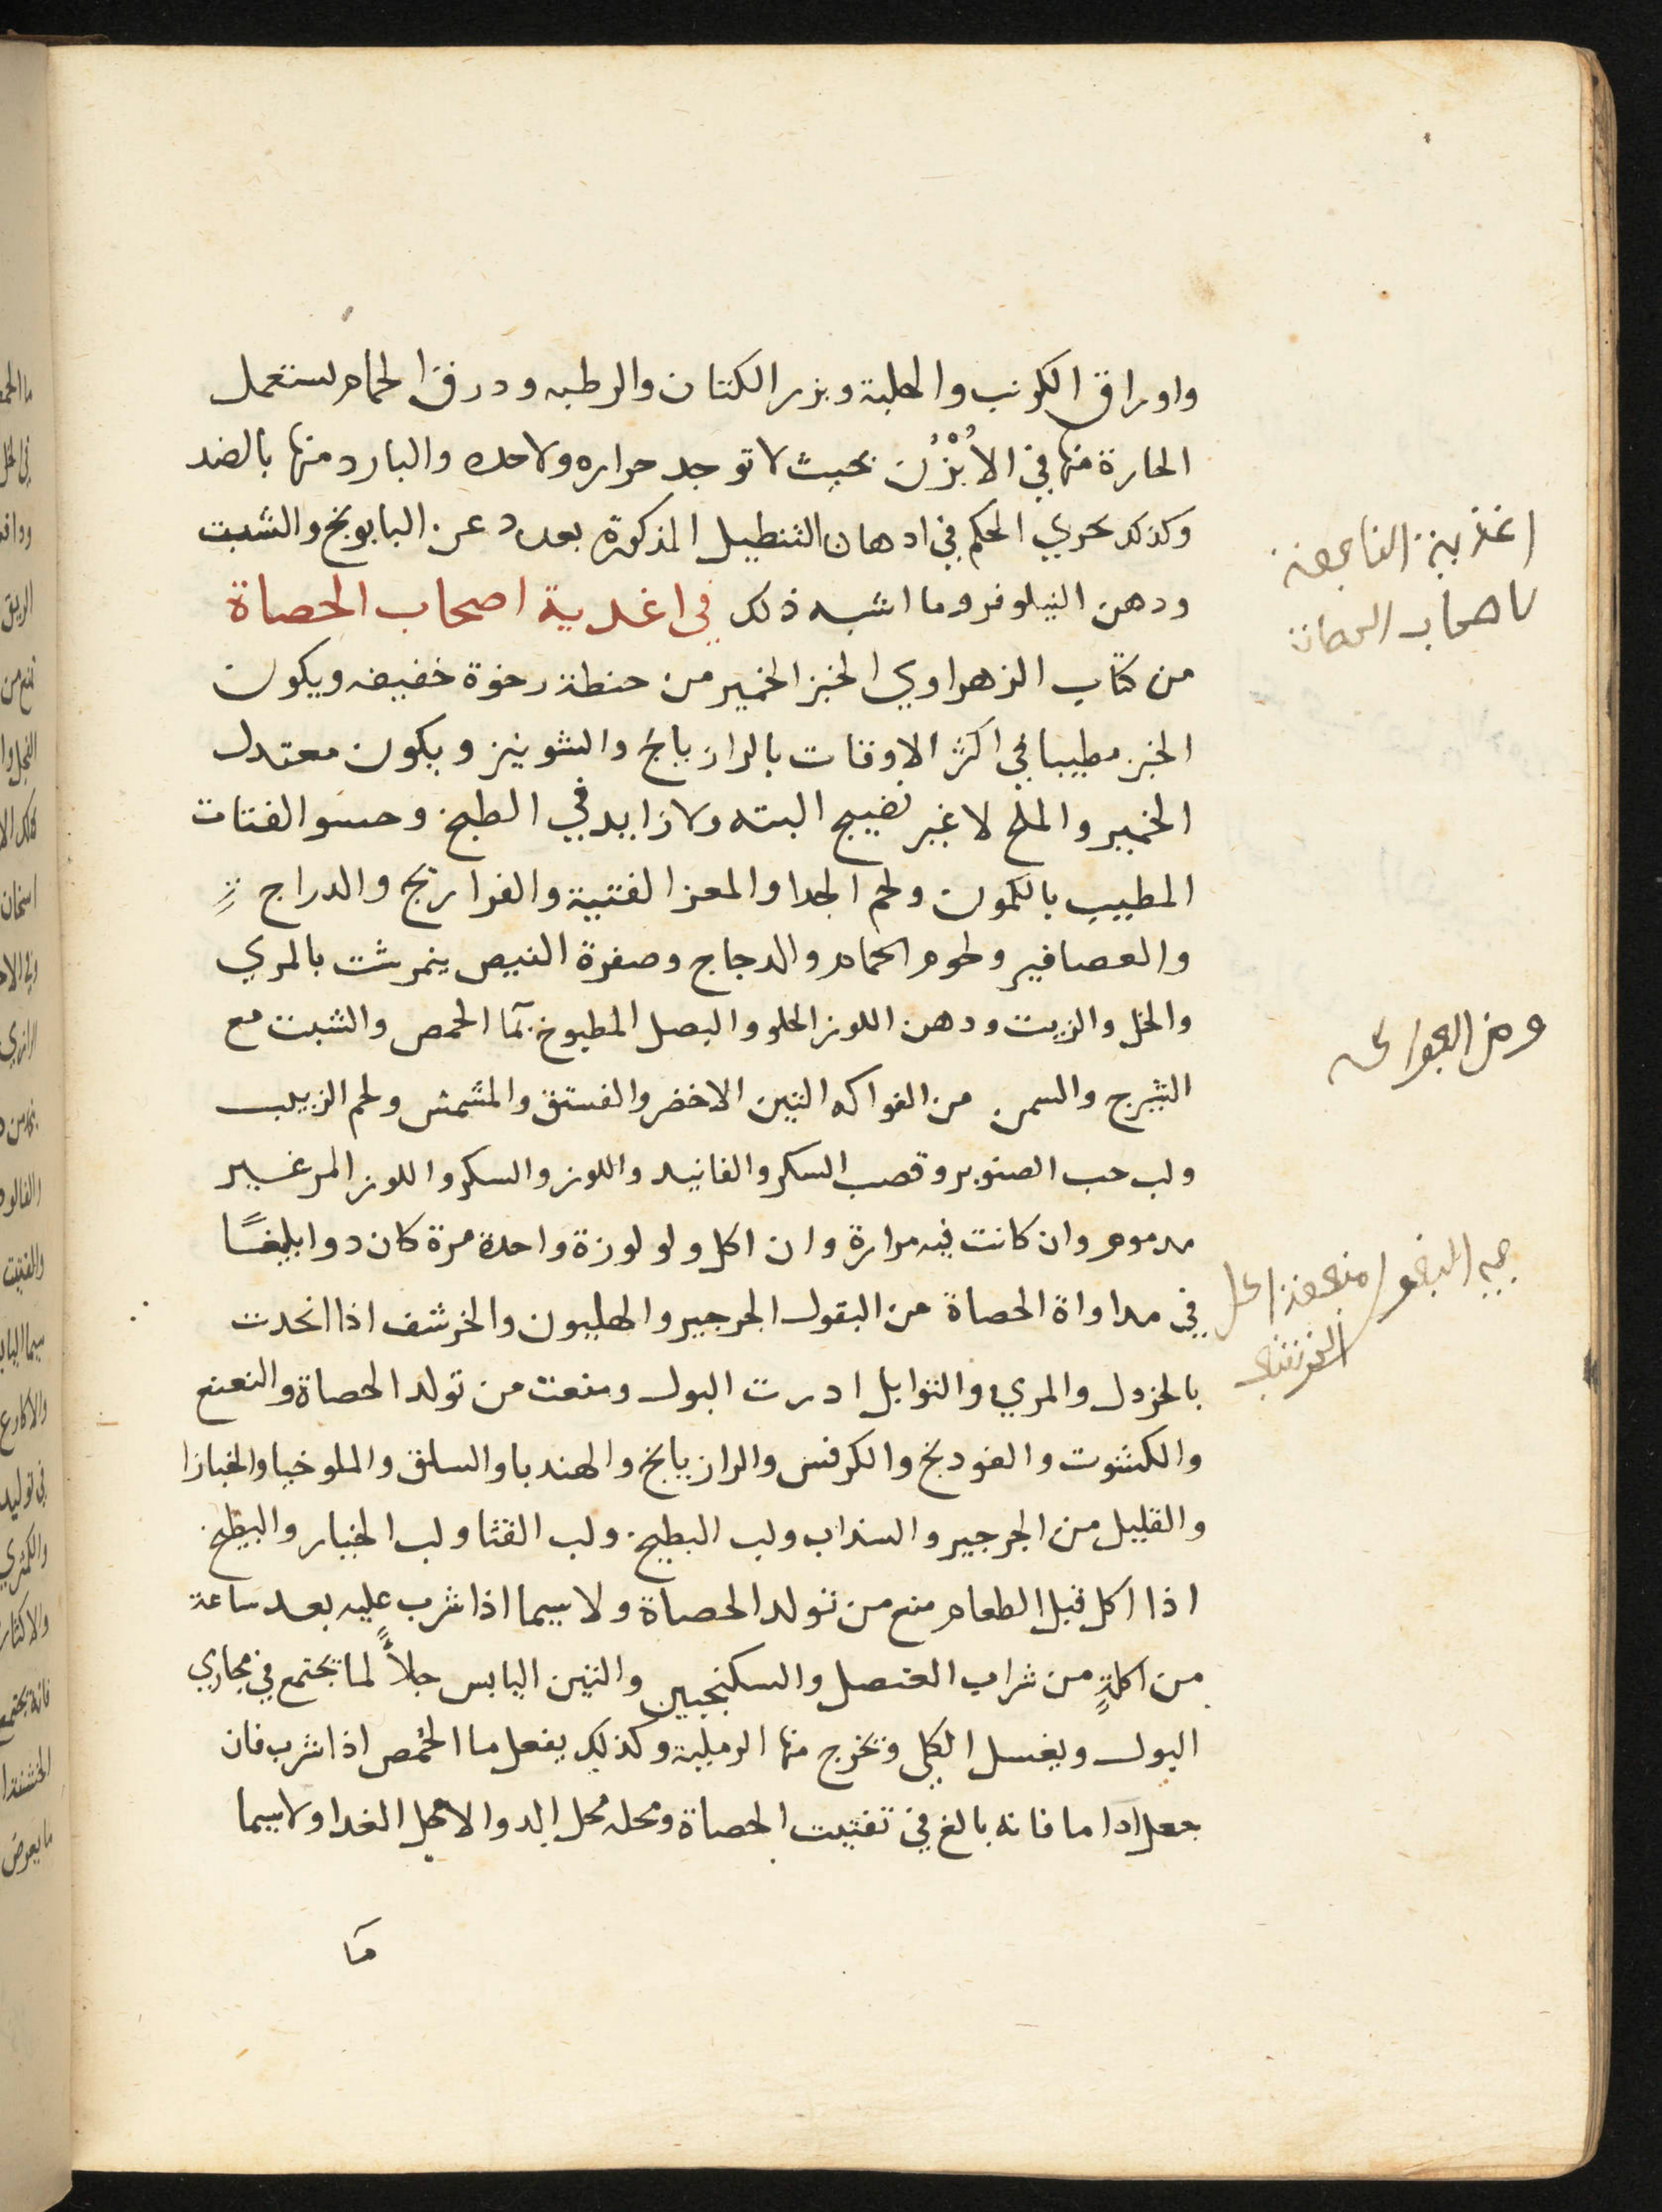 واوراق الكرنب والحلبة وبزر الكتان والرطبه ودرق الحمام يستعمل
الحارة منها في الأُبْزُن بحيث لا توجد حراره ولا حده والبارد منها بالضد
وكذلك يجري الحكم في ادهان التنطيل المذكورة بعد دهن البابونج والشبت
ودهن النيلوفر وما اشبه ذلك في اغدية اصحاب الحصاة
من كتاب الزهراوي الخبز الخمير من حنطة رخوة خفيفه ويكون
الخبز مطيبا في اكثر الاوقات بالرازيانج والشونيز ويكون معتدل
الخمير والملح لا غير نضيج البته ولا زايد في الطبخ وحسو الفتات
المطيب بالكمون ولحم الجدا والمعز الفتية والفراريج والدراج
والعصافير ولحوم الحمام والدجاج وصفرة البيض ينمرشت بالمري
والخل والزيت ودهن اللوز الحلو والبصل المطبوخ بمآ الحمص والشبت مع
الشيرج والسمن من الفواكه التين الاخضر والفستق والمشمش ولحم الزبيب
ولب حب الصنوبر وقصب السكر والفانيد واللوز والسكر واللوز المر غير
مدموم وان كانت فيه مرارة وان اكل ولو لوزة واحدة مرة كان دوا بليغًا
في مداواة الحصاة من البقول الجرجير والهليون والخرشف اذا اتخدت
بالخردل والمري والتوابل ادرت البول ومنعت من تولد الحصاة والنعنع
والكشوت والفودنج والكرفس والرازيانج والهندبا والسلق والملوخيا والخبازا
والقليل من الجرجير والسداب ولب البطيخ ولب القثا ولب الخيار والبطيخ
اذا اكل قبل الطعام منع من تولد الحصاة ولا سيما اذا شرب عليه بعد ساعة
من اكلةٍ من شراب العنصل والسكنجبين والتين اليابس جلاءً لما يجتمع في مجاري
البول ويغسل الكلى ويخرج منها الرملية وكذلك يفعل ما الحمص اذا شرب فان
جعل اداما فانه بالغ في تفتيت الحصاة ومحله محل الدوا لا محل الغدا ولا سيما
مآ
اغذية النافعة
لاصحاب الحصاة
ومن الفواكه